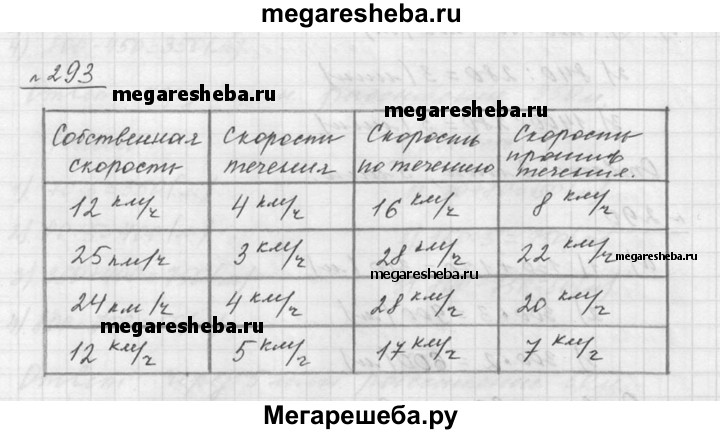 megaresheba.ru
№ 293
megaresheba.ru megaresheba.ru
Собственная скорость | Скорость течения | Скорость по течению | Скорость против течения.
12 км/ч | 4 км/ч | 16 км/ч | 8 км/ч
25 км/ч | 3 км/ч | 28 км/ч | 22 км/ч
megaresheba.ru megaresheba.ru
24 км/ч | 4 км/ч | 28 км/ч | 20 км/ч
megaresheba.ru
12 км/ч | 5 км/ч | 17 км/ч | 7 км/ч
Мегарешеба.ру